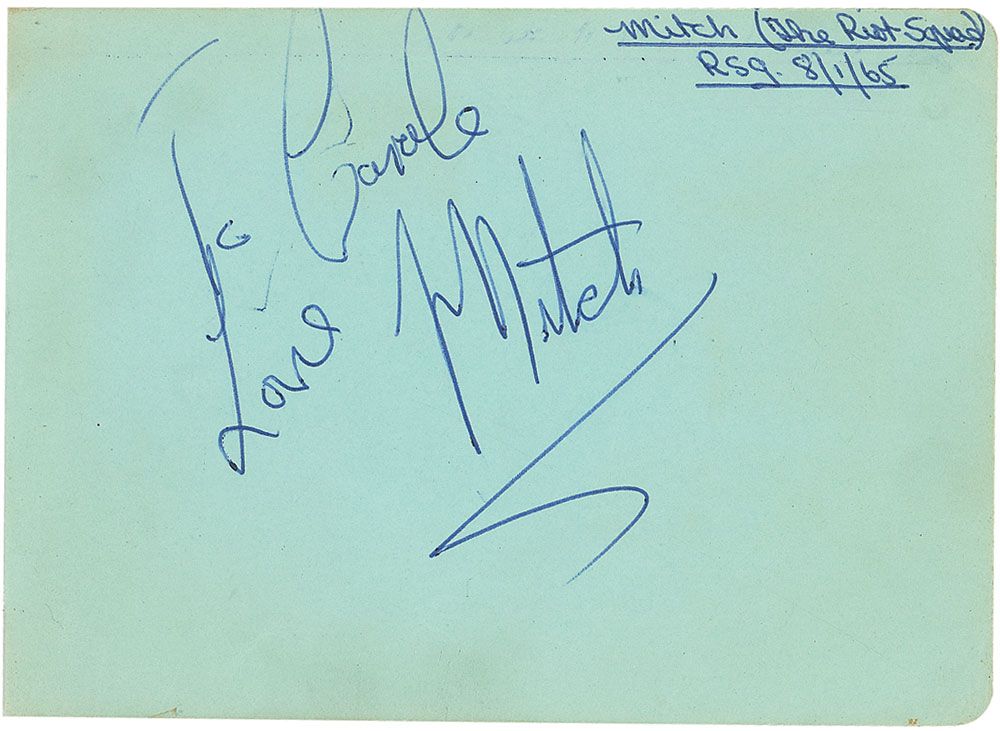 Mitch (The Riot Squad)
RSG. 8/1/65
To Carole
Love Mitch